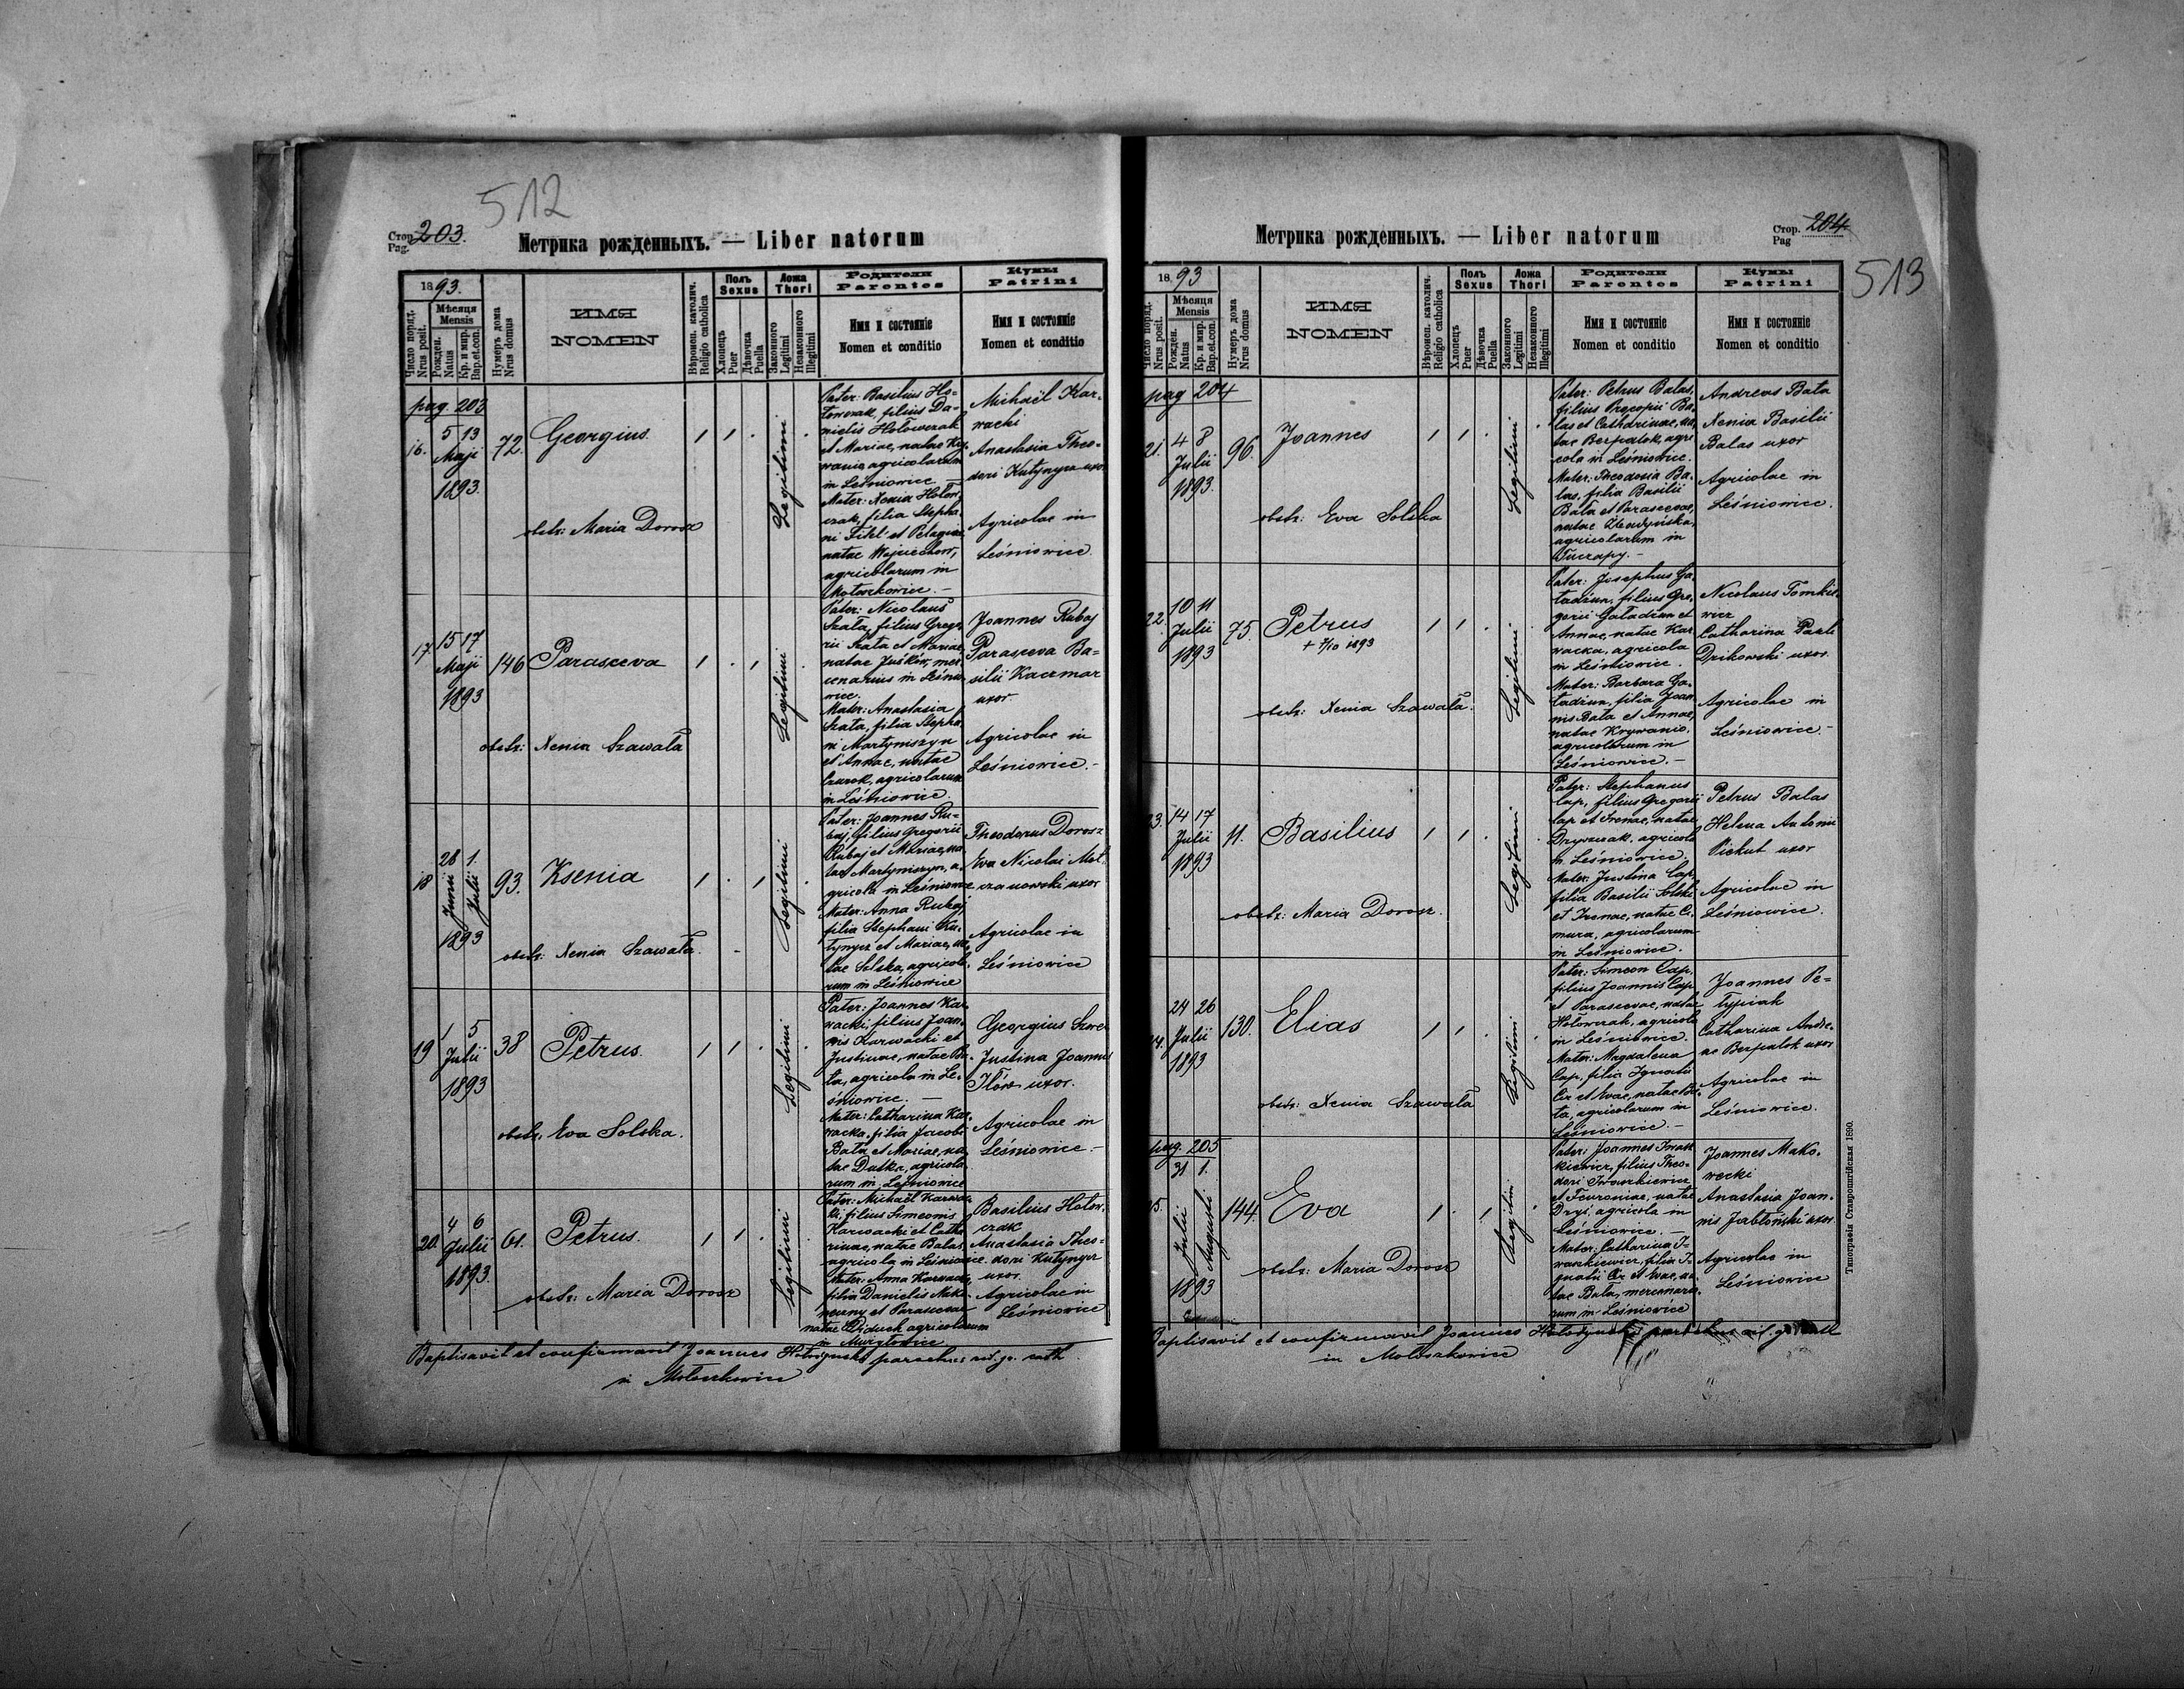 512
Стор. Pag. 203.
Метрика рожденныхъ. — Liber natorum
1893.
Число поряд. Nrus posit.
Мѣсяця Mensis
Рожден. Natus
Кр. и мир. Bap.et.con.
Нумеръ дома Nrus domus
ИМЯ
NOMEN
Вѣроисп. католич. Religio catholica
Полъ Sexus
Хлопецъ Puer
Дѣвочка Puella
Ложа Thori
Законного Legitimi
Незаконного Illegitimi
Родители
Parentes
Имя и состояніе
Nomen et conditio
Кумы
Patrini
Имя и состояніе
Nomen et conditio
pag. 203
16. 5 13 Maji 1893. 72. Georgius 1 1 . Legitimi .
obstr: Maria Dorosz
Pater: Basilius Ho-
łowczak, filius Da-
nielis Hołowczak
et Mariae, natae
agricolarum
in Leśniowice —
Mater: Xenia Hołow-
czak, filia Stepha-
ni Titl et Pelagiae,
natae
agricolarum in
Mołoszkowice. —
Michaël Kar-
wacki
Anastasia Theo-
dori Kutynycz uxor
Agricolae in
Leśniowice.
17. 15 17 Maji 1893 146 Parasceva 1 . 1 Legitimi .
obstr: Xenia Szawała
Pater: Nicolaus
Szata, filius Grego-
rii Szata et Mariae,
natae Juśków, mer-
cenarius in Leśnio-
wice.
Mater: Anastasia
Szata, filia Stepha-
ni Martyniszyn
et Annae, natae
agricolarum
in Leśniowice.
Joannes Rubaj
Parasceva Ba-
silii Kaczmar
uxor.
Agricolae in
Leśniowice. -
18 28 Junii 1. Julii 1893 93. Ksenia 1 . 1 Legitimi .
obstr: Xenia Szawała.
Pater: Joannes Ru-
baj, filius Gregorii
Rubaj et Mariae, na-
tae Martyniszyn, a-
gricola in Leśniowice
Mater: Anna Rubaj,
filia Stephani Ku-
tynycz et Mariae, na-
tae Solska, agricola-
rum in Leśniowice
Theodorus Dorosz
Eva Nicolai Mol-
czanowski uxor
Agricolae in
Leśniowice
19 1 5 Julii 1893 38 Petrus. 1 1 . Legitimi .
obstr: Eva Solska.
Pater: Joannes Kar-
wacki, filius Joan-
nis Karwacki et
Justinae, natae Ba-
ta, agricola in Le-
śniowice. —
Mater: Catharina Kar-
wacka, filia Jacobi
Bata et Mariae, na-
tae Dutka, agricola-
rum in Leśniowice
Georgius
Justina Joannis
uxor.
Agricolae in
Leśniowice. -
20. 4 6 Julii 1893. 61. Petrus. 1 1 . Legitimi .
obstr: Maria Dorosz
Pater: Michaël Karwac-
ki, filius Simeonis
Karwacki et Catha-
rinae, natae Balas,
agricola in Leśniowice.
Mater: Anna Karwacka,
filia Danielis
et Parascevae
natae Diduch agricolarum
in
Basilius Hołow-
czak
Anastasia Theo-
dori Kutynycz
uxor.
Agricolae in
Leśniowice
Baptisavit et confirmavit Joannes Hołodyński parochus rit. gr. cath
in Mołoszkowice
513
Стор. Pag 204
Метрика рожденныхъ. — Liber natorum
1893
Число поряд. Nrus posit.
Мѣсяця Mensis
Рожден. Natus
Кр. и мир. Bap.et.con.
Нумеръ дома Nrus domus
ИМЯ
NOMEN
Вѣроисп. католич. Religio catholica
Полъ Sexus
Хлопецъ Puer
Дѣвочка Puella
Ложа Thori
Законного Legitimi
Незаконного Illegitimi
Родители
Parentes
Имя и состояніе
Nomen et conditio
Кумы
Patrini
Имя и состояніе
Nomen et conditio
pag 204
21. 4 8 Julii 1893. 96. Joannes 1 1 . Legitimi .
obstr: Eva Solska
Pater: Petrus Balas,
filius Procopii Ba-
las et Catharinae, na-
tae Berpalok, agri-
cola in Leśniowice.
Mater: Theodosia Ba-
las, filia Basilii
Bała et Parascevae,
natae
agricolarum in
Tuczapy. -
Andreas Bata
Xenia Basilii
Balas uxor
Agricolae in
Leśniowice.
22. 10 11 Julii 1893 75. Petrus 1 1 .
+ 7/10 1893 Legitimi
obstr: Xenia Szawała.
Pater: Josephus Ga-
ładzun, filius Gre-
gorii Gaładzun et
Annae, natae Kar-
wacka, agricola
in Leśniowice.
Mater: Barbara Ga-
ładzun, filia Joan-
nis Bała et Annae,
natae Krywanio,
agricolarum in
Leśniowice. -
Nicolaus Tomkie-
wicz
Catharina Pauli
Dzikowski uxor.
Agricolae in
Leśniowice. -
23. 14 17 Julii 1893 11. Basilius 1 1 . Legitimi .
obstr: Maria Dorosz.
Pater: Stephanus
Cap, filius Gregorii
Cap et Irenae, natae
agricola
in Leśniowice.
Mater: Justina Cap,
filia Basilii Solski
et Irenae, natae Ci-
mura, agricolarum
in Leśniowice.
Petrus Balas
Helena Antonii
Pickut uxor
Agricolae in
Leśniowice.
24. 24 26 Julii 1893 130. Elias 1 1 . Legitimi .
obstr: Xenia Szawała
Pater: Simeon Cap,
filius Joannis Cap
et Parascevae, natae
Hołowczak, agricola
in Leśniowice.
Mater: Magdalena
Cap, filia Ignatii
Cir et Evae, natae Ba-
ta, agricolarum in
Leśniowice. -
Joannes Pe-
typiak
Catharina Andre-
ae Berpalok uxor
Agricolae in
Leśniowice.
pag. 205
25. 31 Julii 1. Augusti 1893 144. Eva 1 . 1 Legitimi .
obstr: Maria Dorosz
Pater: Joannes Iwasz-
kiewicz, filius Theo-
dori Iwaszkiewicz
et Fevroniae, natae
Dryś, agricola in
Leśniowice. —
Mater: Catharina I-
waszkiewicz, filia I-
gnatii Cir et Evae, na-
tae Bała, mercenario-
rum in Leśniowice
Joannes Mako-
wecki
Anastasia Joan-
nis Jabłoński uxor.
Agricolae in
Leśniowice
Baptisavit et confirmavit Joannes Hołodyński parochus rit. gr. cath
in Mołoszkowice
Типографія Ставропигійская 1890.